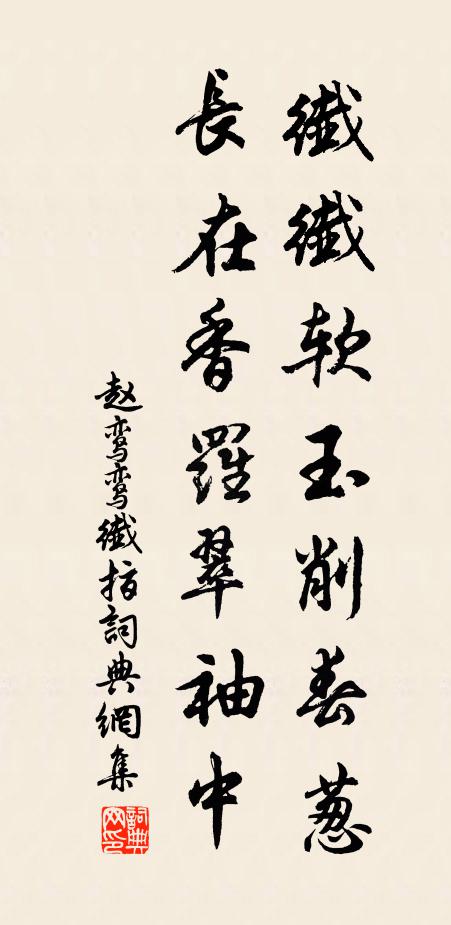 纖纖软玉削春葱
長在香羅翠袖中
赵鸾鸾纖指詞典網集
詞典网印